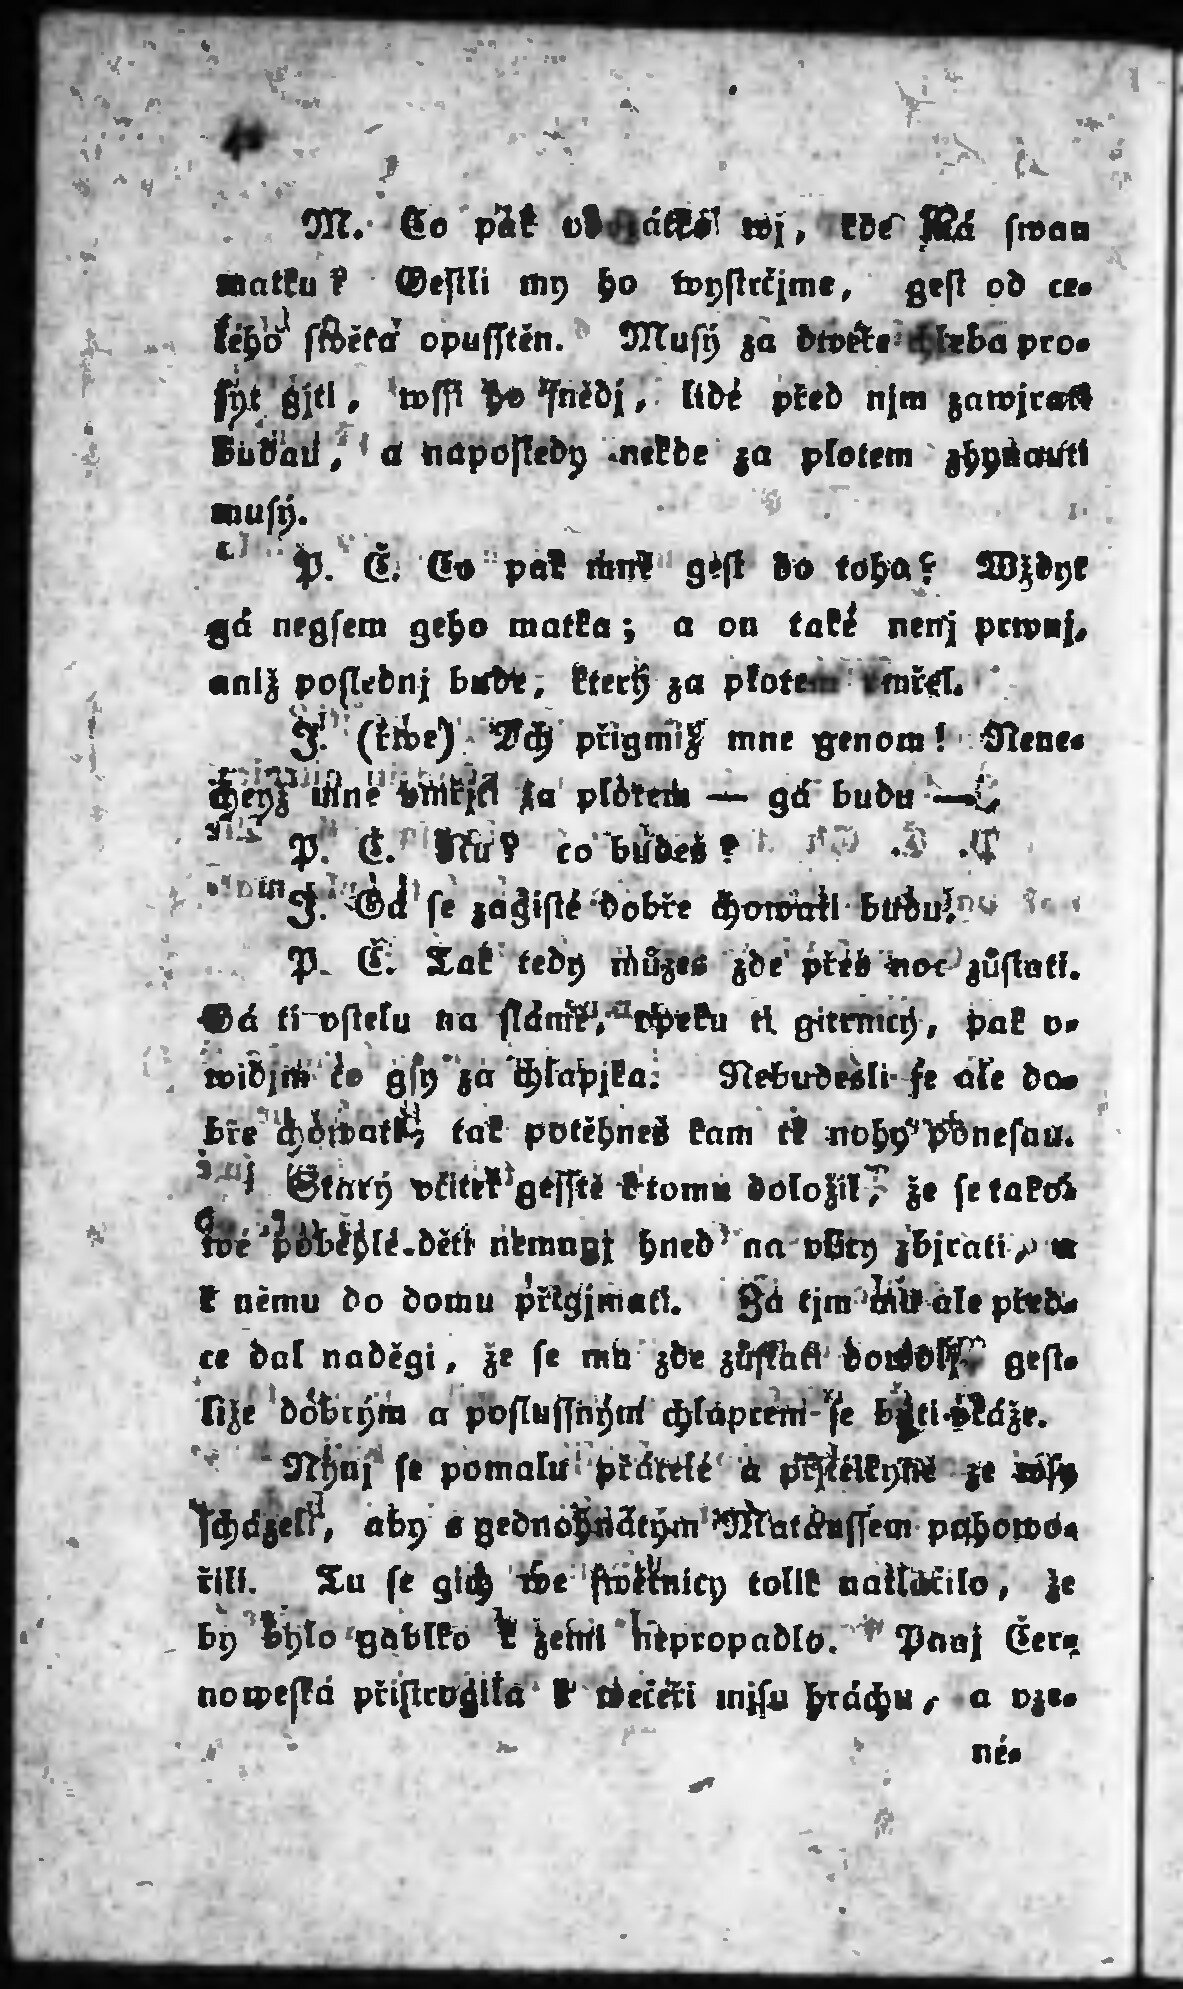 M. Co pak wj, kde má swau
matku? Gestli my ho wystrčjme, gest od ce-
lého swěta opusstěn. Musý za dweře chleba pro-
syt gjti, wssi ho snědj, lidé před njm zawjrati
budau, a naposledy nekde za plotem zhynauti
musý.
P. Č. Co pak mně gest do toho? Wždyk
gá negsem geho matka; a on také nenj prwnj,
aniž poslednj bude, který za plotem vmřel.
J. (řwe) Ach přigmiž mne genom! Nene-
cheyž mne vmřjti za plotem — gá budu —
P. Č. Nu? co budeš?
J. Gá se zagisté dobře chowati budu.
P. Č. Tak tedy můžes zde přes noc zůstati.
Gá ti vstelu na slámě, vpeku ti giternicy, pak v-
widjm co gsy za chlapjka. Nebudešli se ale do-
bře chowati, tak potěhneš kam tě nohy ponesau.
Starý včitel gesstě k tomu doložil, že se tako-
wé poběhlé děti nemagj hned na vlicy zbjrati, a
k němu do domu přigjmati. Za tjm mu ale před-
ce dal naděgi, že se mu zde zůstati dowolj, gest-
liže dobrým a poslussným chlapcem se býti vkáže.
Nynj se pomalu přátelé a přjtelkyně ze wsy
scházeli, aby s gednohnátým Mataussem pohowo-
řili. Tu se gich we swětnicy tolik natlačilo, že
by bylo gablko k zemi nepropadlo. Panj Čer-
noweská přistrogila k wečeři mjsu hráchu, a vze-
né-